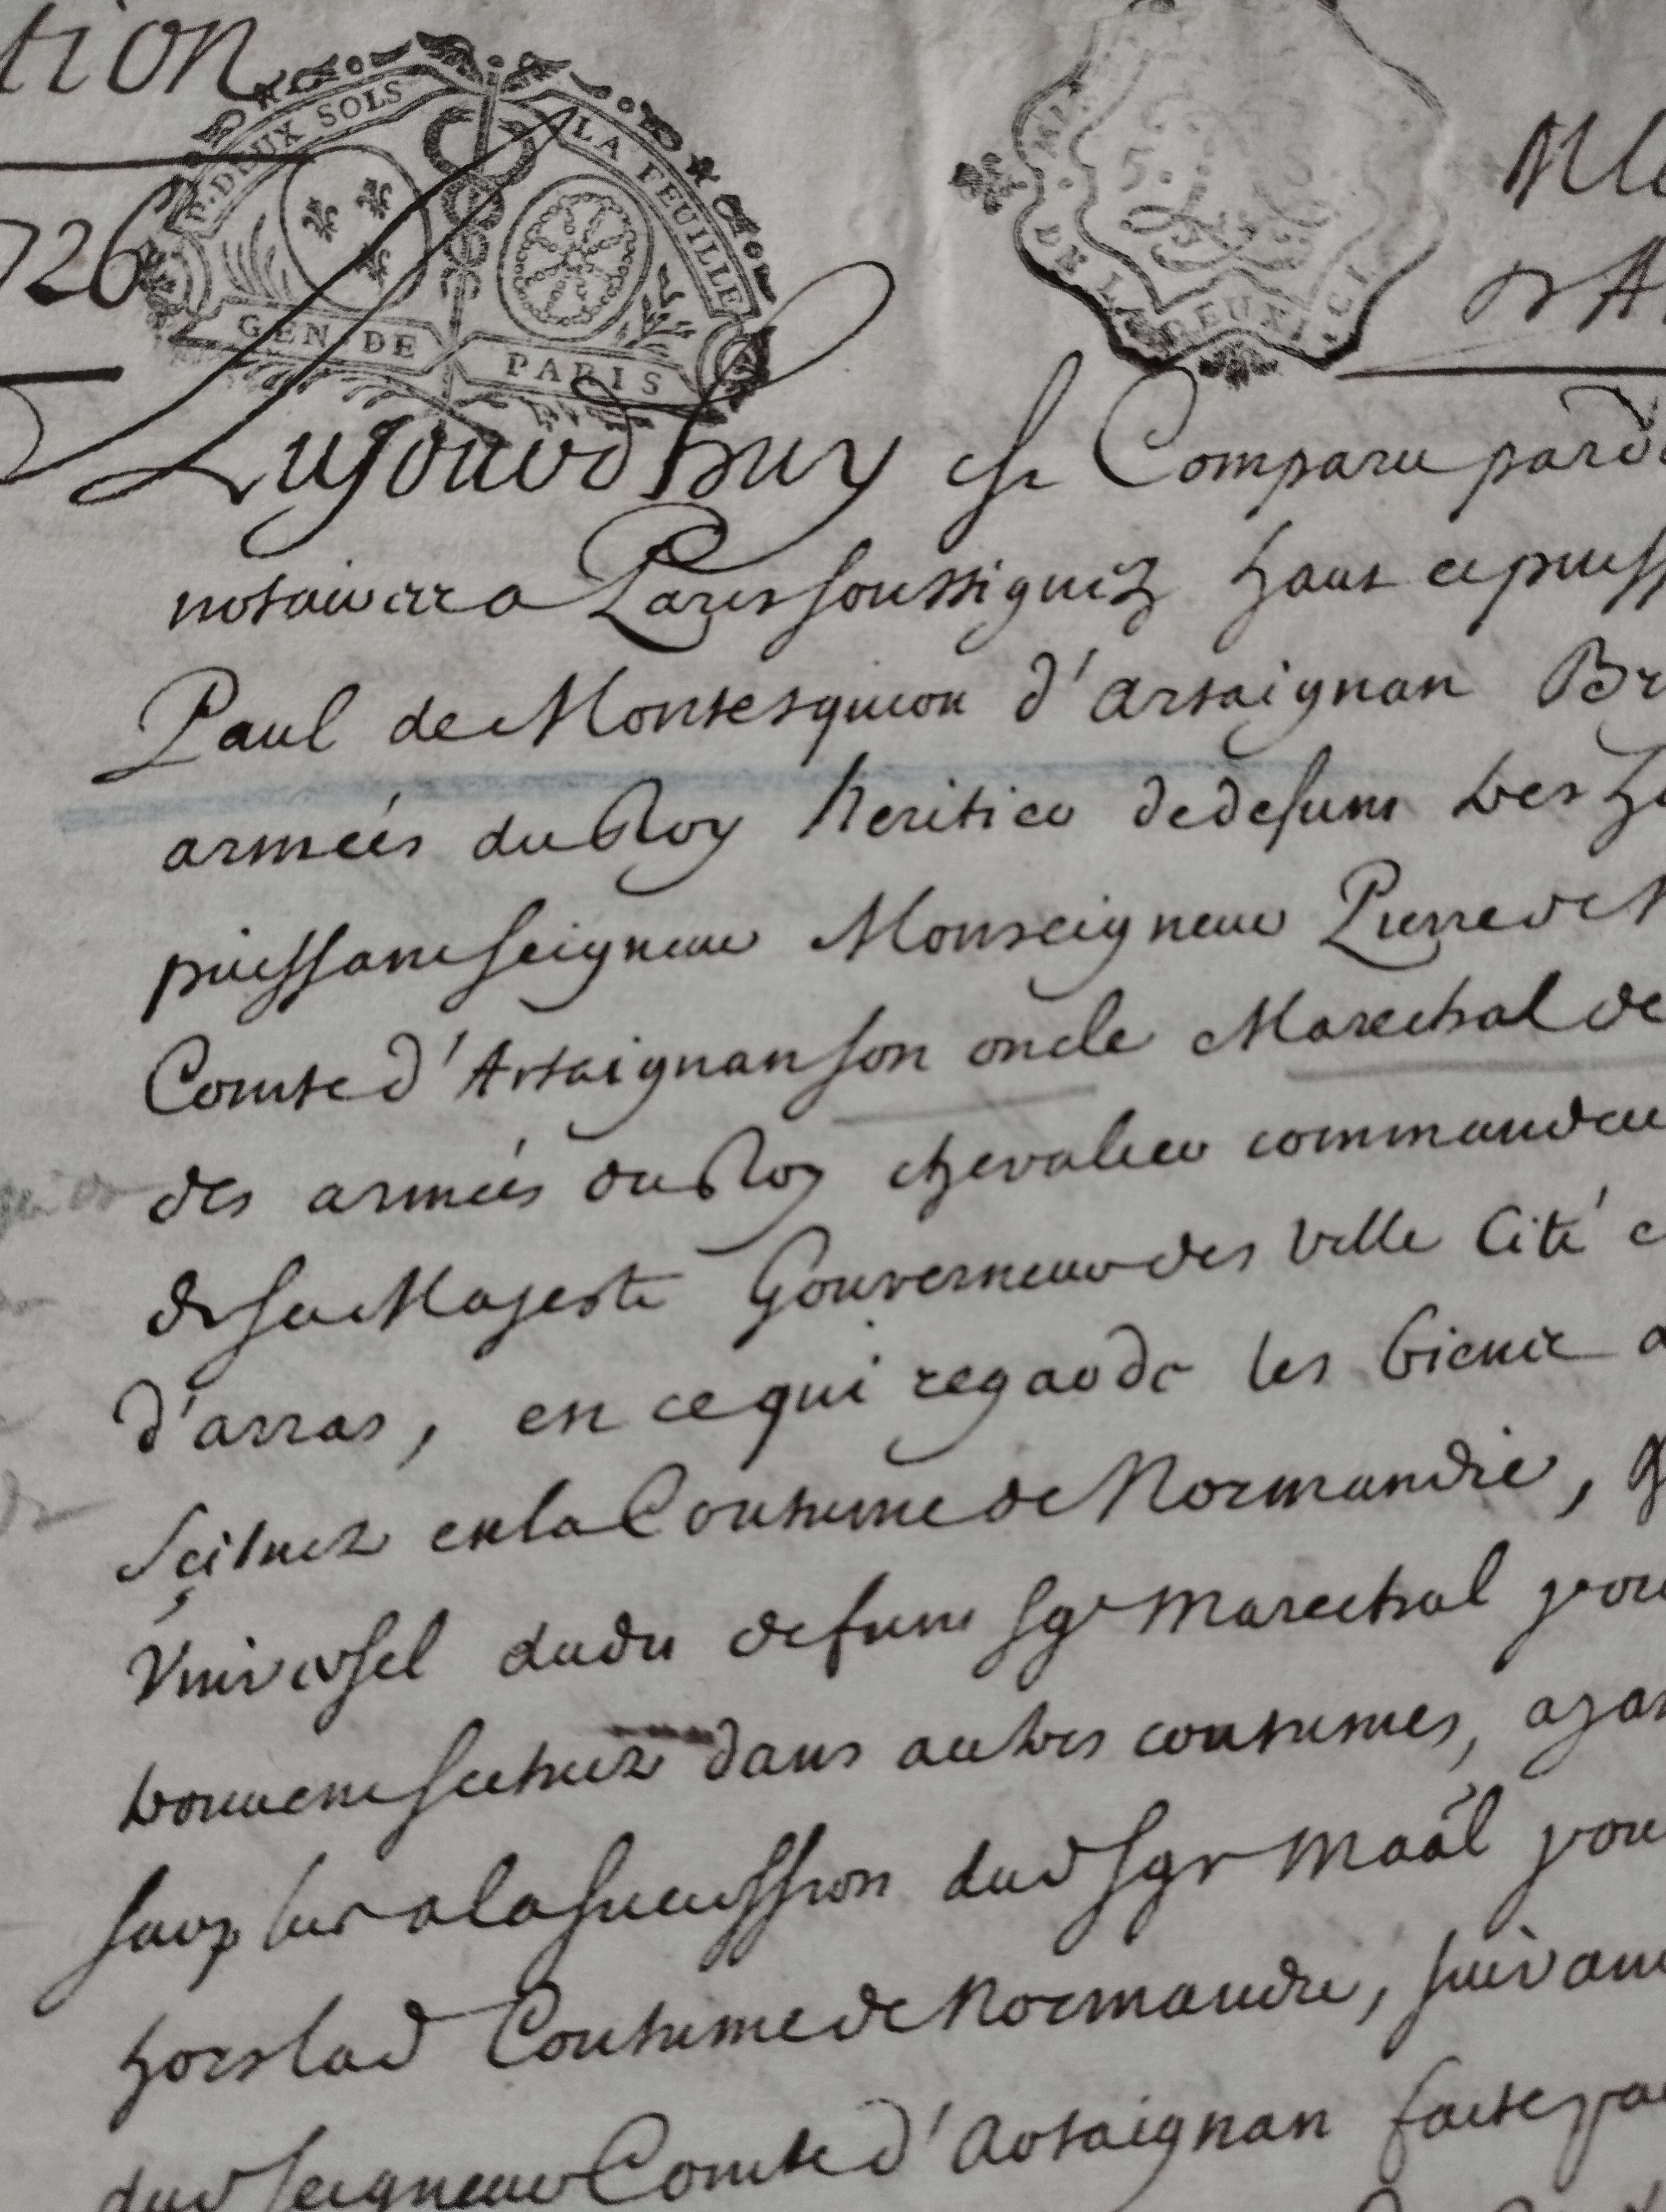 tion
P. DEUX SOLS LA FEUILLE
GEN DE PARIS
DE LA
1726
Aujourd huy est Comparu pard
notaires a Paris soussignez haut et puiss
Paul de Montesquiou d'artaignan Br
armées du Roy heritier de defunt tres h
puissant seigneur Monseigneur Pierre de M
Comte d'Artaignan son oncle Marechal de
des armées du Roy chevalier commandeu
de sa Majesté Gouverneur des Ville Cité e
d'arras, en ce qui regarde les biens
scituez en la Coutume de Normandie,
Universel dudit defunt sgr marechal pou
trouvent scituez dans autres coutumes, ayan
sur la succession dud sgr maál pou
hors lad Coutume de Normandie, suivant
dud seigneur Comte d'Artaignan faite pa